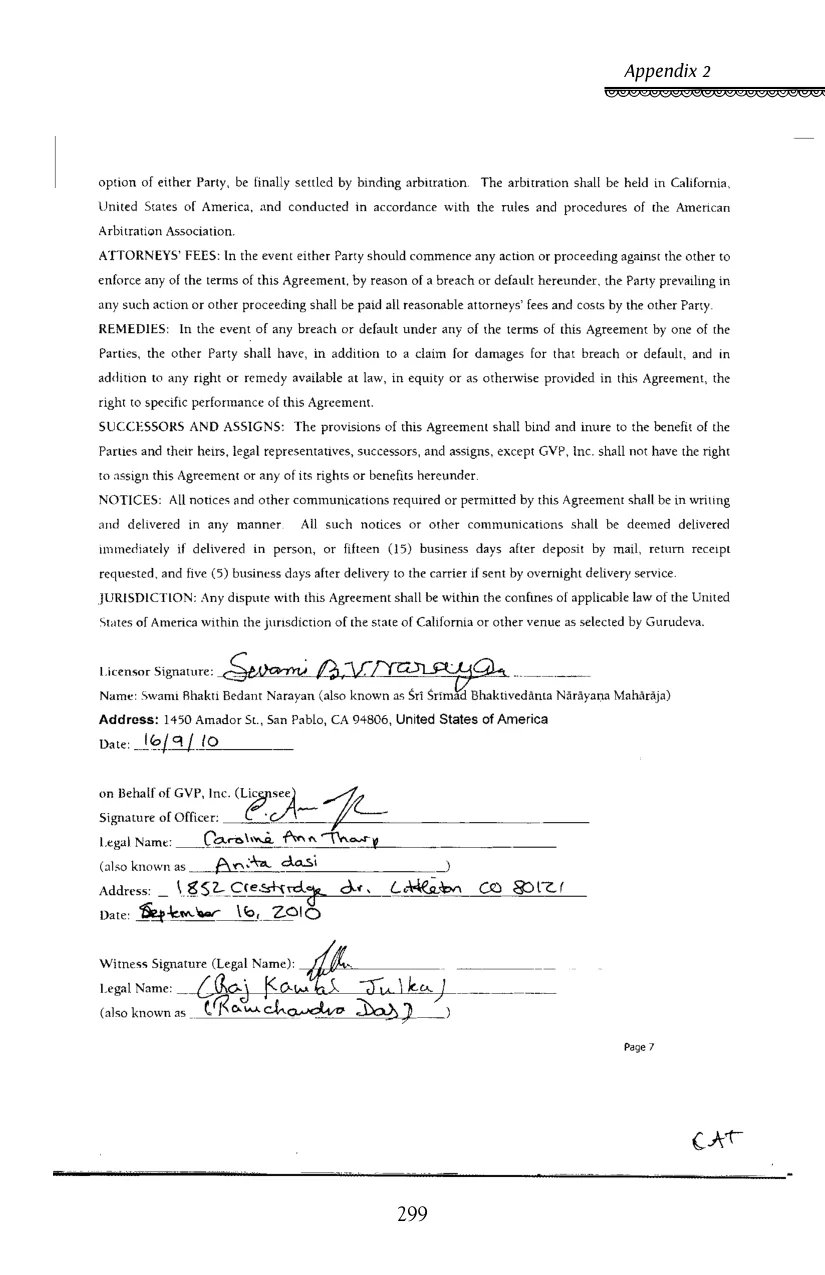 Appendix 2
option of either Party, be finally settled by binding arbitration. The arbitration shall be held in California,
United States of America, and conducted in accordance with the rules and procedures of the American
Arbitration Association.
ATTORNEYS' FEES: In the event either Party should commence any action or proceeding against the other to
enforce any of the terms of this Agreement, by reason of a breach or default hereunder, the Party prevailing in
any such action or other proceeding shall be paid all reasonable attorneys' fees and costs by the other Party.
REMEDIES: In the event of any breach or default under any of the terms of this Agreement by one of the
Parties, the other Party shall have, in addition to a claim for damages for that breach or default, and in
addition to any right or remedy available at law, in equity or as otherwise provided in this Agreement, the
right to specific performance of this Agreement.
SUCCESSORS AND ASSIGNS: The provisions of this Agreement shall bind and inure to the benefit of the
Parties and their heirs, legal representatives, successors, and assigns, except GVP, Inc. shall not have the right
to assign this Agreement or any of its rights or benefits hereunder.
NOTICES: All notices and other communications required or permitted by this Agreement shall be in writing
and delivered in any manner. All such notices or other communications shall be deemed delivered
immediately if delivered in person, or fifteen (15) business days after deposit by mail, return receipt
requested, and five (5) business days after delivery to the carrier if sent by overnight delivery service.
JURISDICTION: Any dispute with this Agreement shall be within the confines of applicable law of the United
States of America within the jurisdiction of the state of California or other venue as selected by Gurudeva.
Licensor Signature: Swami B.V. Narayan
Name: Swami Bhakti Bedant Narayan (also known as Śrī Śrīmad Bhaktivedānta Nārāyaṇa Mahārāja)
Address: 1450 Amador St., San Pablo, CA 94806, United States of America
Date: 16/9/10
on Behalf of GVP, Inc. (Licensee)
Signature of Officer:
Legal Name: Caroline Ann Tharp
(also known as Anita dasi)
Address: 1852 Crestridge dr. Littleton CO 80121
Date: September 16, 2010
Witness Signature (Legal Name):
Legal Name: (Raj Kamal Julka)
(also known as (Ramchandra Das))
Page 7
CAT
299